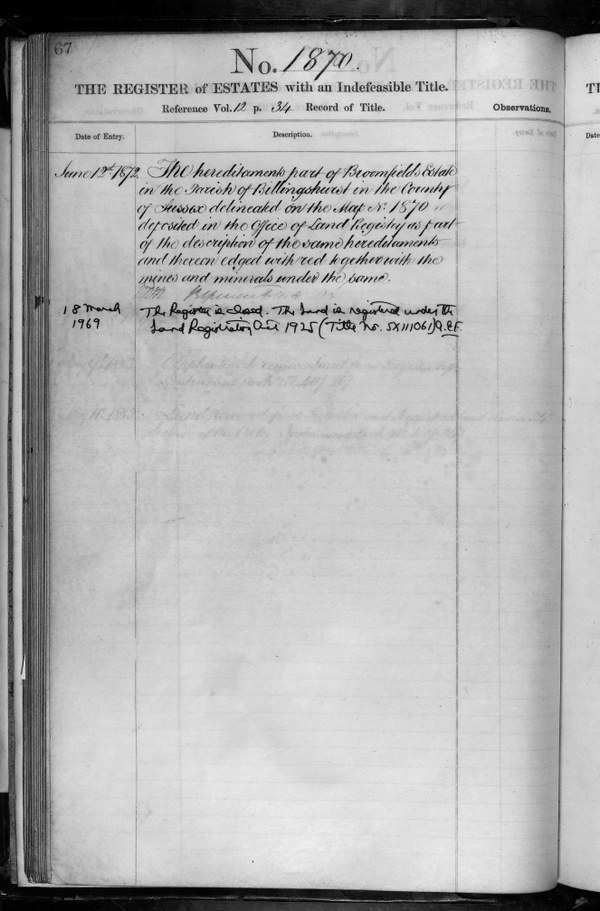 67
No. 1870.
THE REGISTER of ESTATES with an Indefeasible Title.
Reference Vol. 12 p. 34 Record of Title.
Observations.
Date of Entry.
Description.
Date
June 12th 1872
The hereditaments part of Broomfields Estate
in the Parish of Billingshurst in the County
of Sussex delineated on the Map No. 1870
deposited in the Office of Land Registry as part
of the description of the same hereditaments
and thereon edged with red together with the
mines and minerals under the same.
18 March
1969
The Register is closed. The land is registered under the
Land Registration Act 1925 (Title No. SX111061)